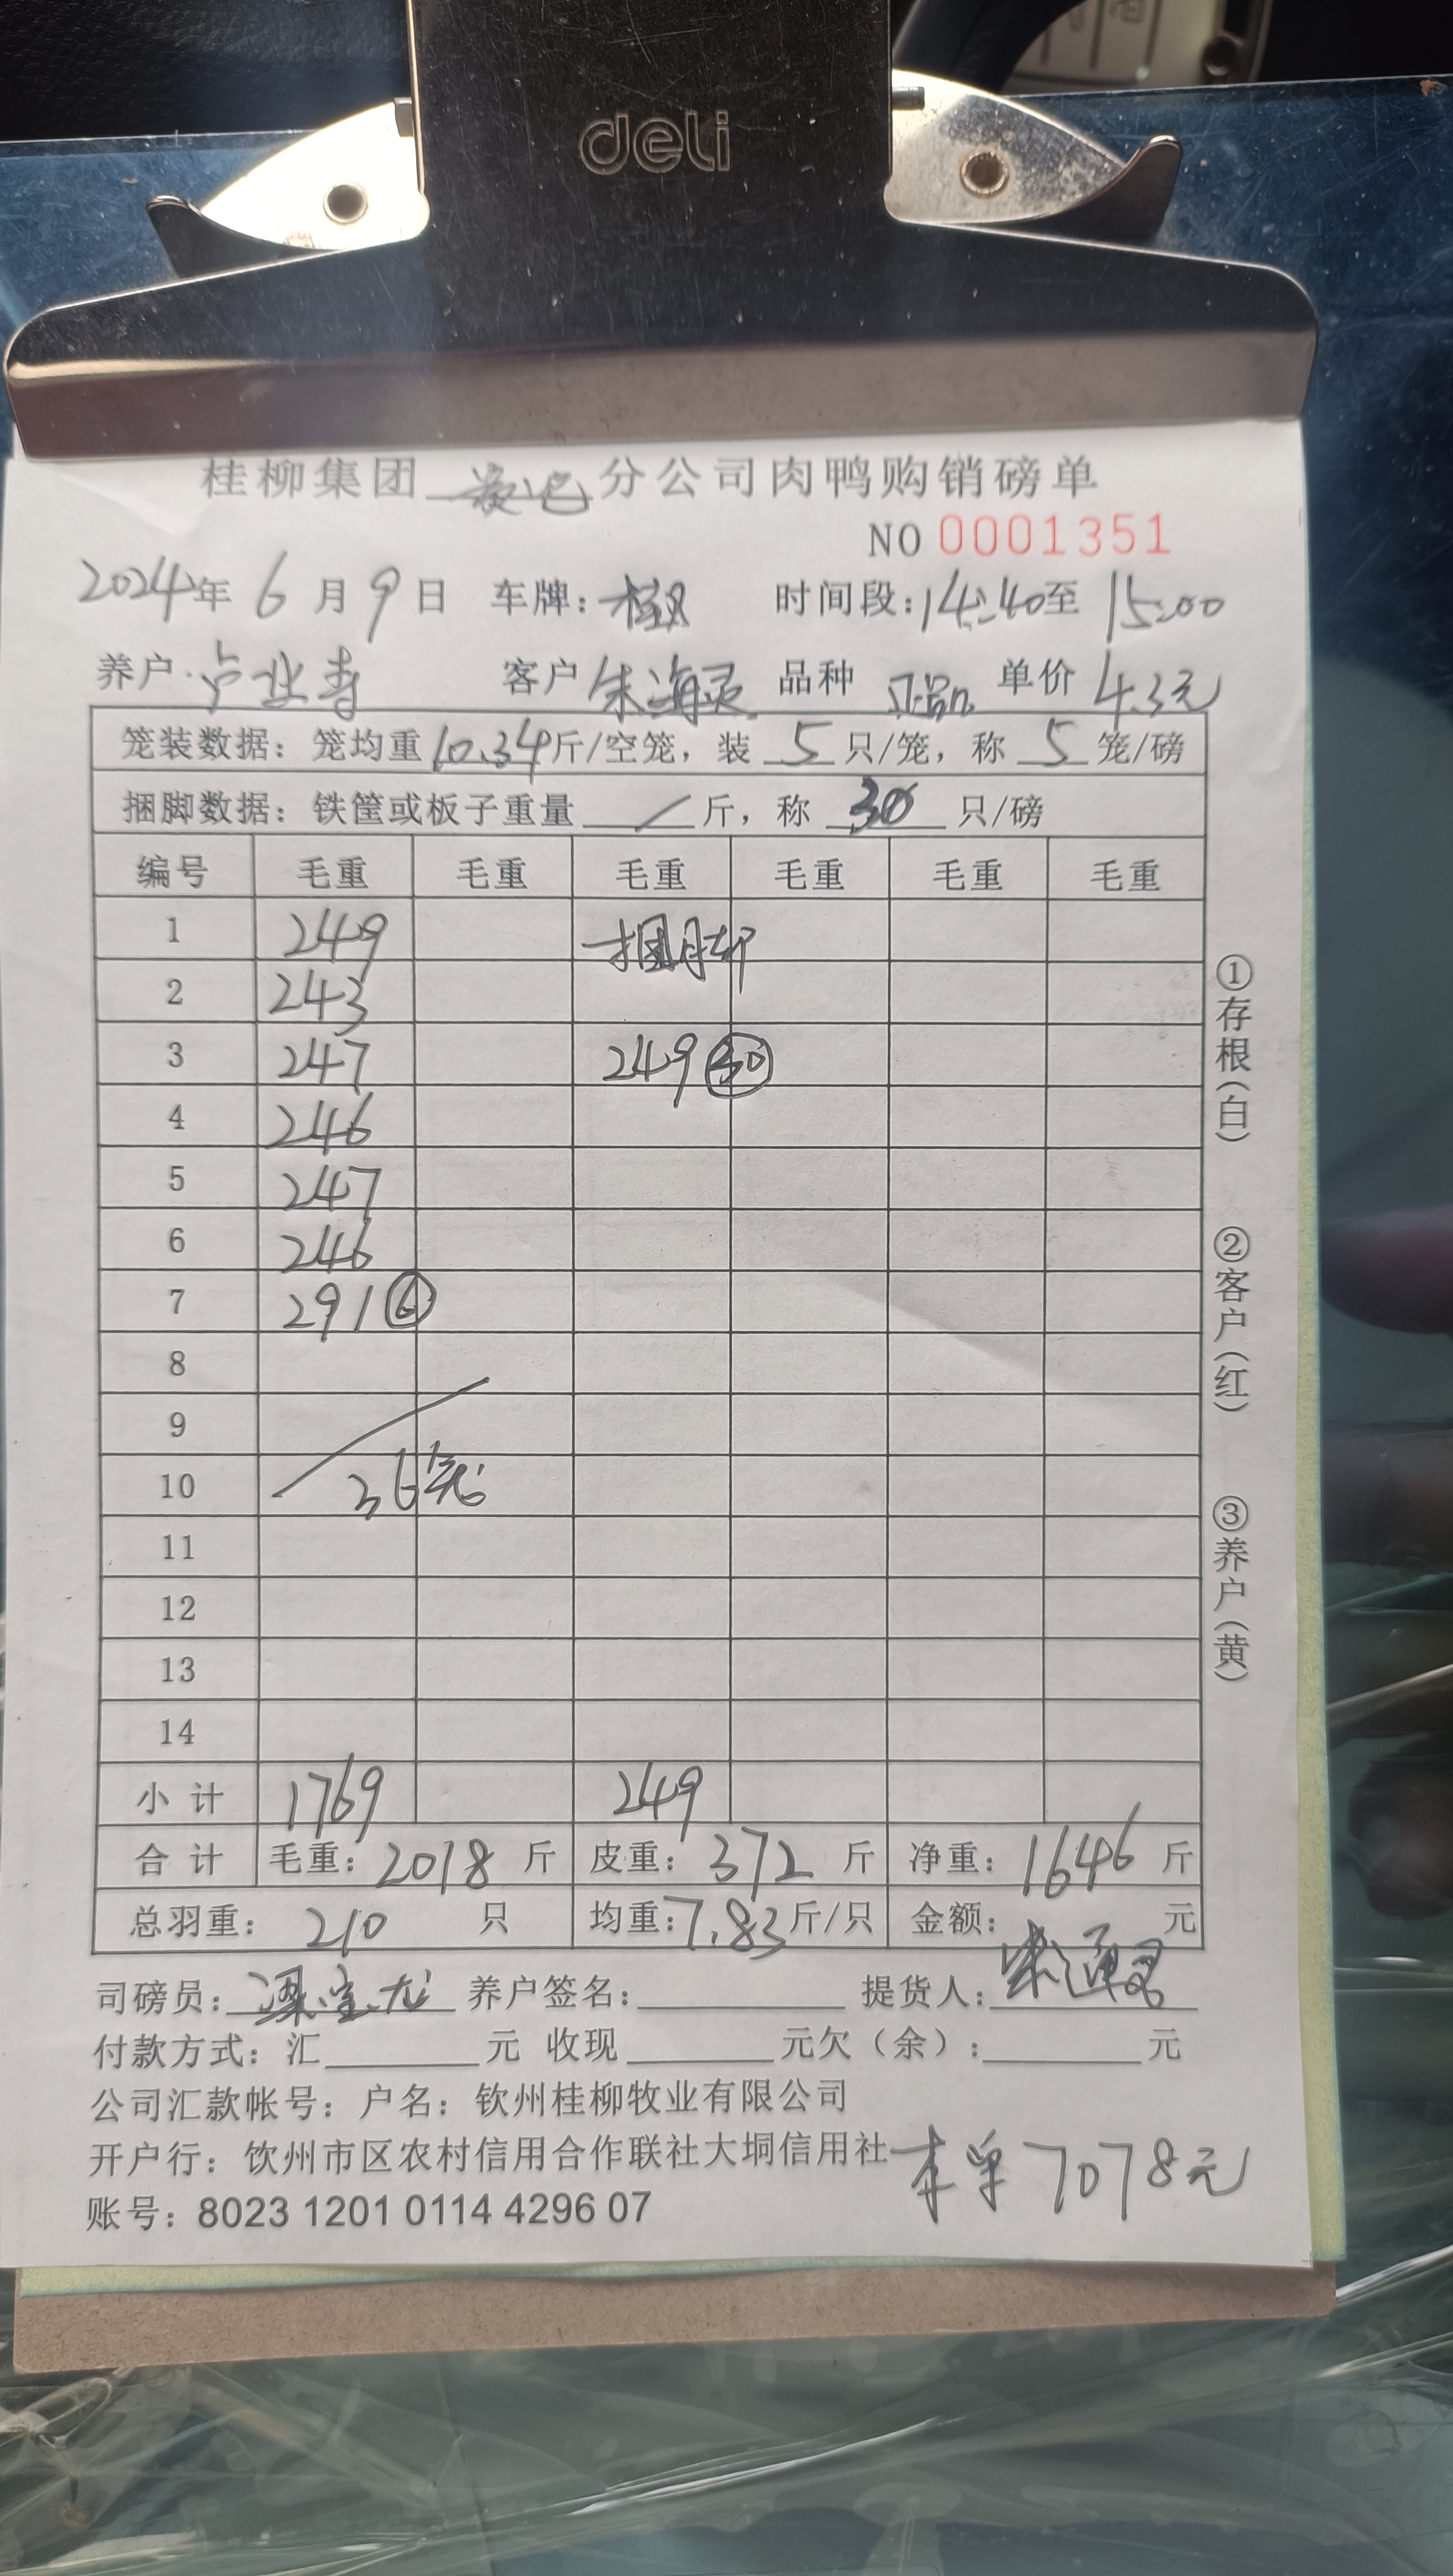 deli
桂柳集团 分公司肉鸭购销磅单
NO 0001351
2024年 6 月 9 日 车牌: 时间段:14:40至 15:00
养户 卢业寿 客户 朱海灵 品种 正品 单价 4.3元
笼装数据: 笼均重 10.34 斤/空笼, 装 5 只/笼, 称 5 笼/磅
捆脚数据: 铁筐或板子重量 / 斤, 称 30 只/磅
编号 毛重 毛重 毛重 毛重 毛重 毛重
1 249 捆脚
2 243
3 247 249 30
4 246
5 247
6 246
7 291 6
8
9
10 36笼
11
12
13
14
小 计 1769 249
合 计 毛重: 2018 斤 皮重: 372 斤 净重: 1646 斤
总羽重: 210 只 均重: 7.83 斤/只 金额: 元
司磅员: 养户签名: 提货人:
付款方式: 汇 元 收现 元欠(余): 元
公司汇款帐号: 户名: 钦州桂柳牧业有限公司
开户行: 饮州市区农村信用合作联社大垌信用社 本单 7078元
账号: 8023 1201 0114 4296 07
①存根(白)
②客户(红)
③养户(黄)